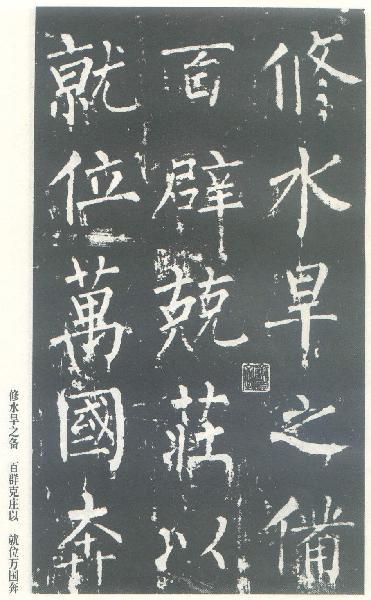 修水旱之備
百辟兢莊以
就位萬國奔
修水旱之备 百群克庄以 就位万国奔